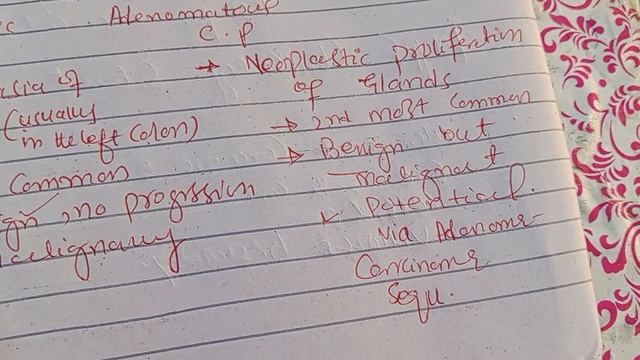 Adenomatous
C.P
asia of
(usually
in the left Colon)
Common
gn, no progression
malignancy
→ Neoplastic proliferation
of Glands
→ 2nd most Common
→ Benign but
malignant
potential.
via Adenoma-
Carcinoma
Sequ.